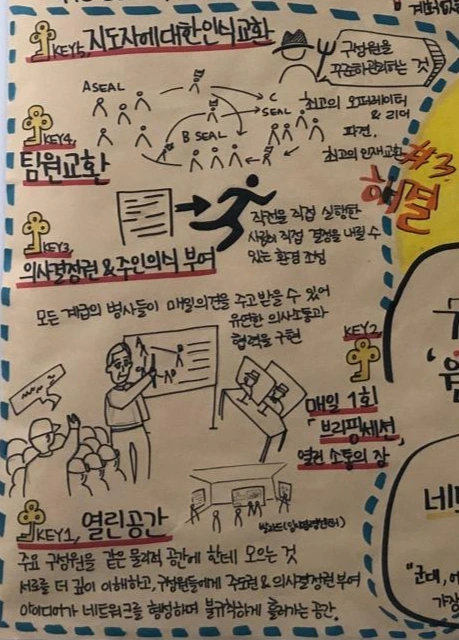 KEY5, 지도자에 대한 인식 교환
구성원을
꾸준하관리하는 것
A SEAL
C
SEAL
B SEAL
최고의 오퍼레이터
& 리더
파견,
최고의 인재교환
KEY4,
팀원교환
#3
해결
KEY3,
의사결정권 & 주인의식 부여
작전을 직접 실행한
사람이 직접 결정을 내릴 수
있는 환경 조성
모든 계급의 병사들이 매일 의견을 주고 받을 수 있어
유연한 의사소통과
협력을 구현
KEY2,
매일 1회
「브리핑세션,
열린 소통의 장
KEY1, 열린공간
주요 구성원을 같은 물리적 공간에 한데 모으는 것
서로를 더 깊이 이해하고, 구성원들에게 주도권 & 의사결정권 부여
아이디어가 네트워크를 형성하며 불규칙하게 흘러가는 공간.
네트
"군대, 어
가장